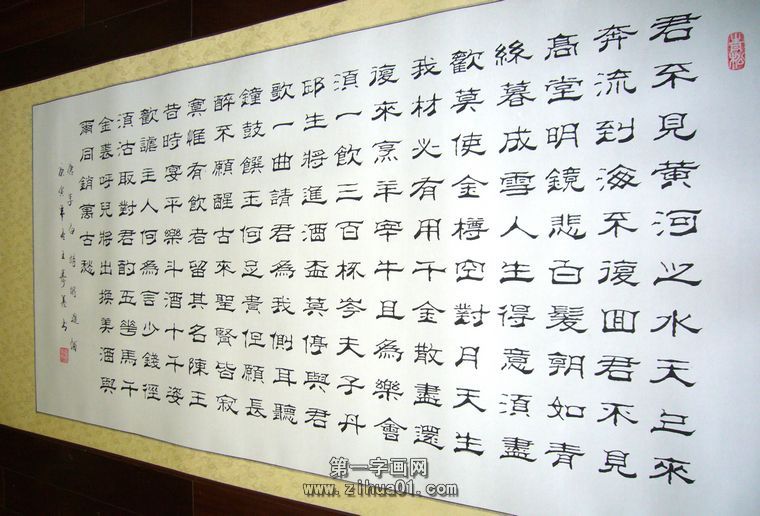 君不見黄河之水天上來
奔流到海不復回君不見
高堂明鏡悲白髮朝如青
絲暮成雪人生得意須盡
歡莫使金樽空對月天生
我材必有用千金散盡還
復來烹羊宰牛且為樂會
須一飲三百杯岑夫子丹
邱生將進酒盃莫停與君
歌一曲請君為我側耳聽
鐘鼓饌玉何足貴但願長
醉不願醒古來聖賢皆寂
寞惟有飲者留其名陳王
昔時宴平樂斗酒十千姿
歡謔主人何為言少錢徑
須沽取對君酌五華馬千
金裘呼兒將出換美酒與
爾同銷萬古愁
唐李白詩將進酒
第一字画网
www.zihua01.com